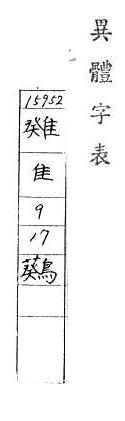 異體字表
15952
隹
9
17